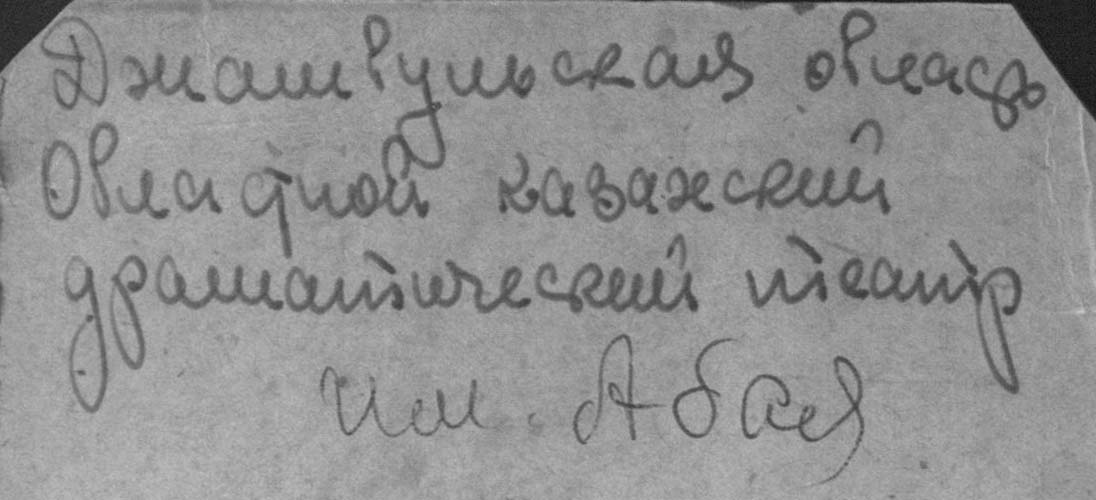 Джамбульская область
Областной казахский
драматический театр
им. Абая